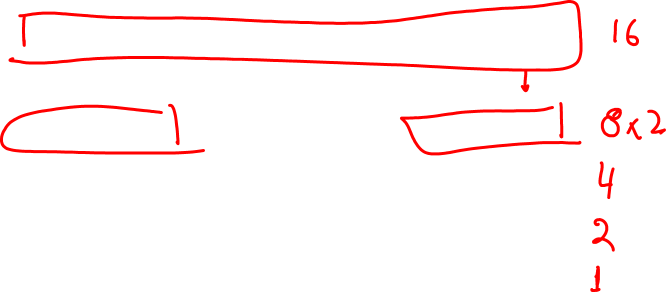 16
8x2
4
2
1